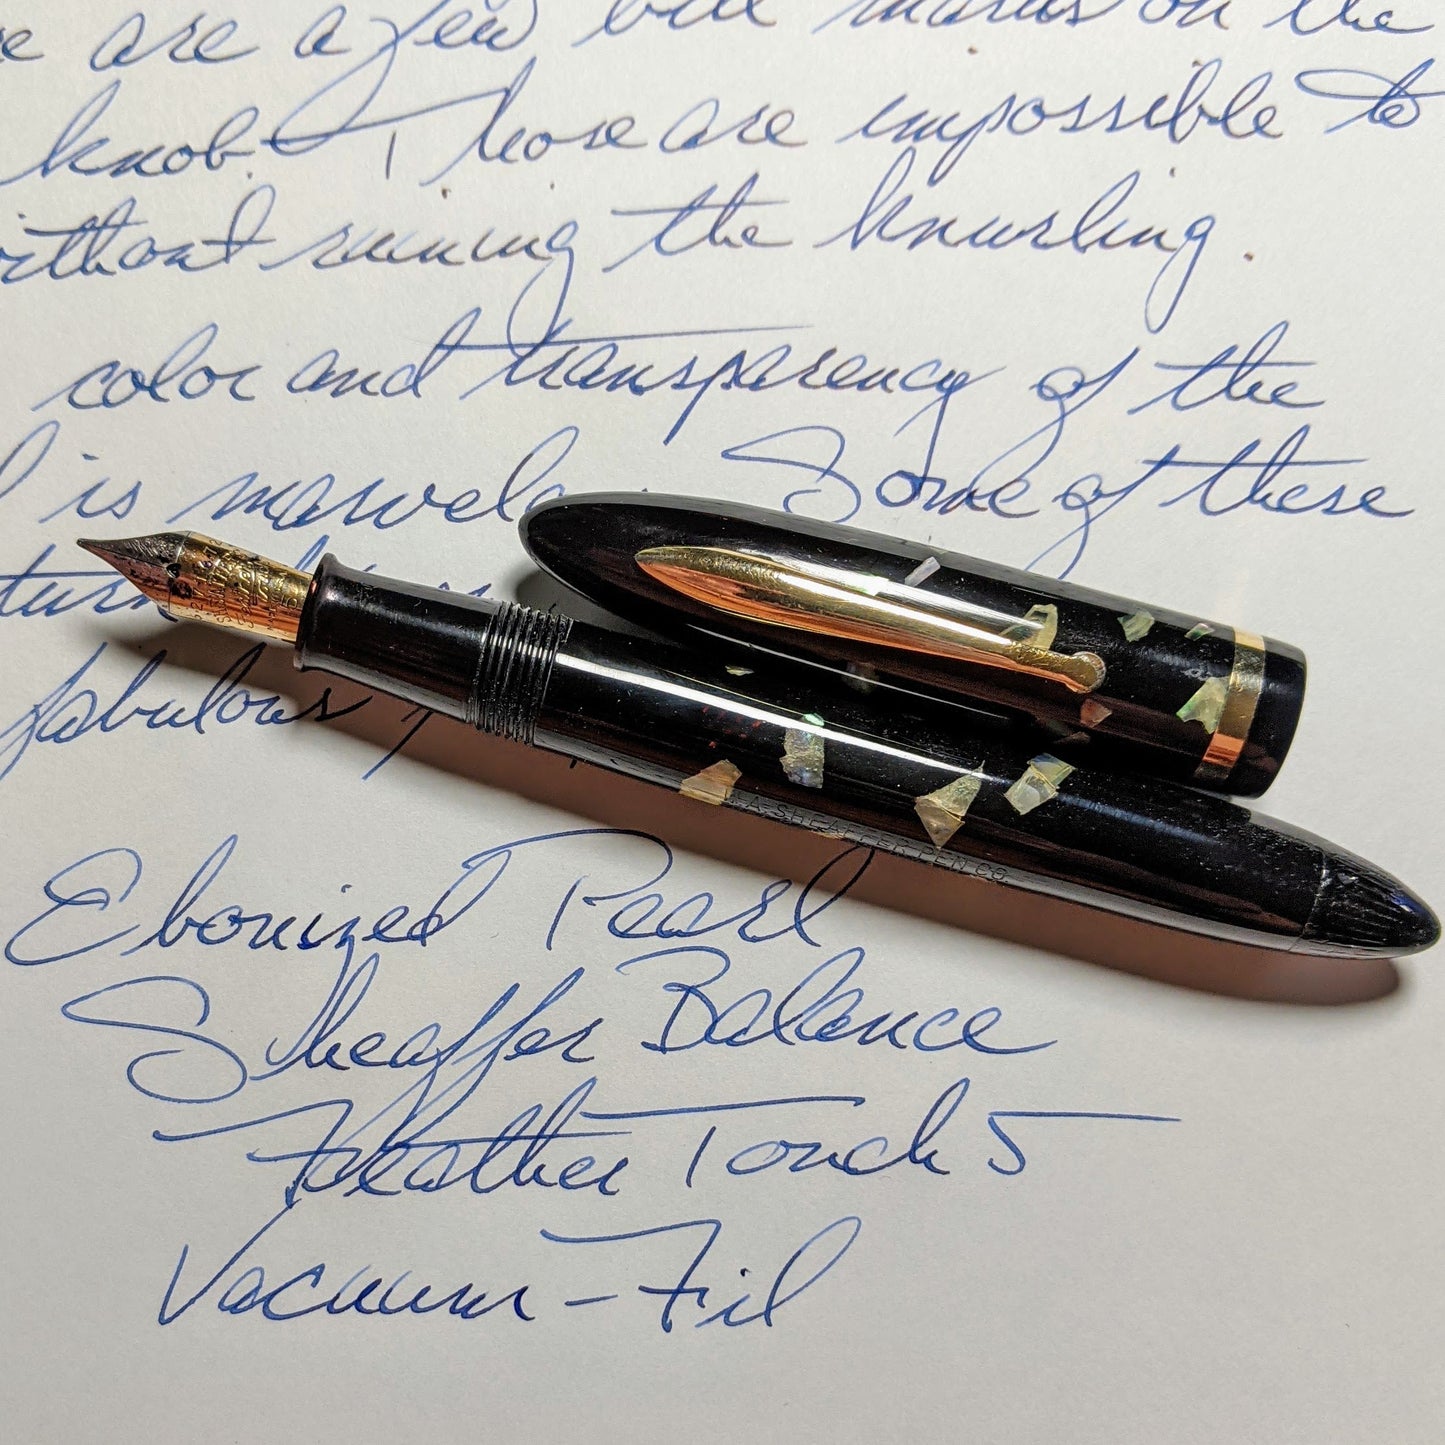 are a few bite marks on the
knob. Those are impossible to
without ruining the knurling.
color and transparency of the
is marvelous. Some of these
fabulous
W.A. SHEAFFER PEN CO.
Ebonized Pearl
Sheaffer Balance
Feather Touch 5
Vacuum-Fil